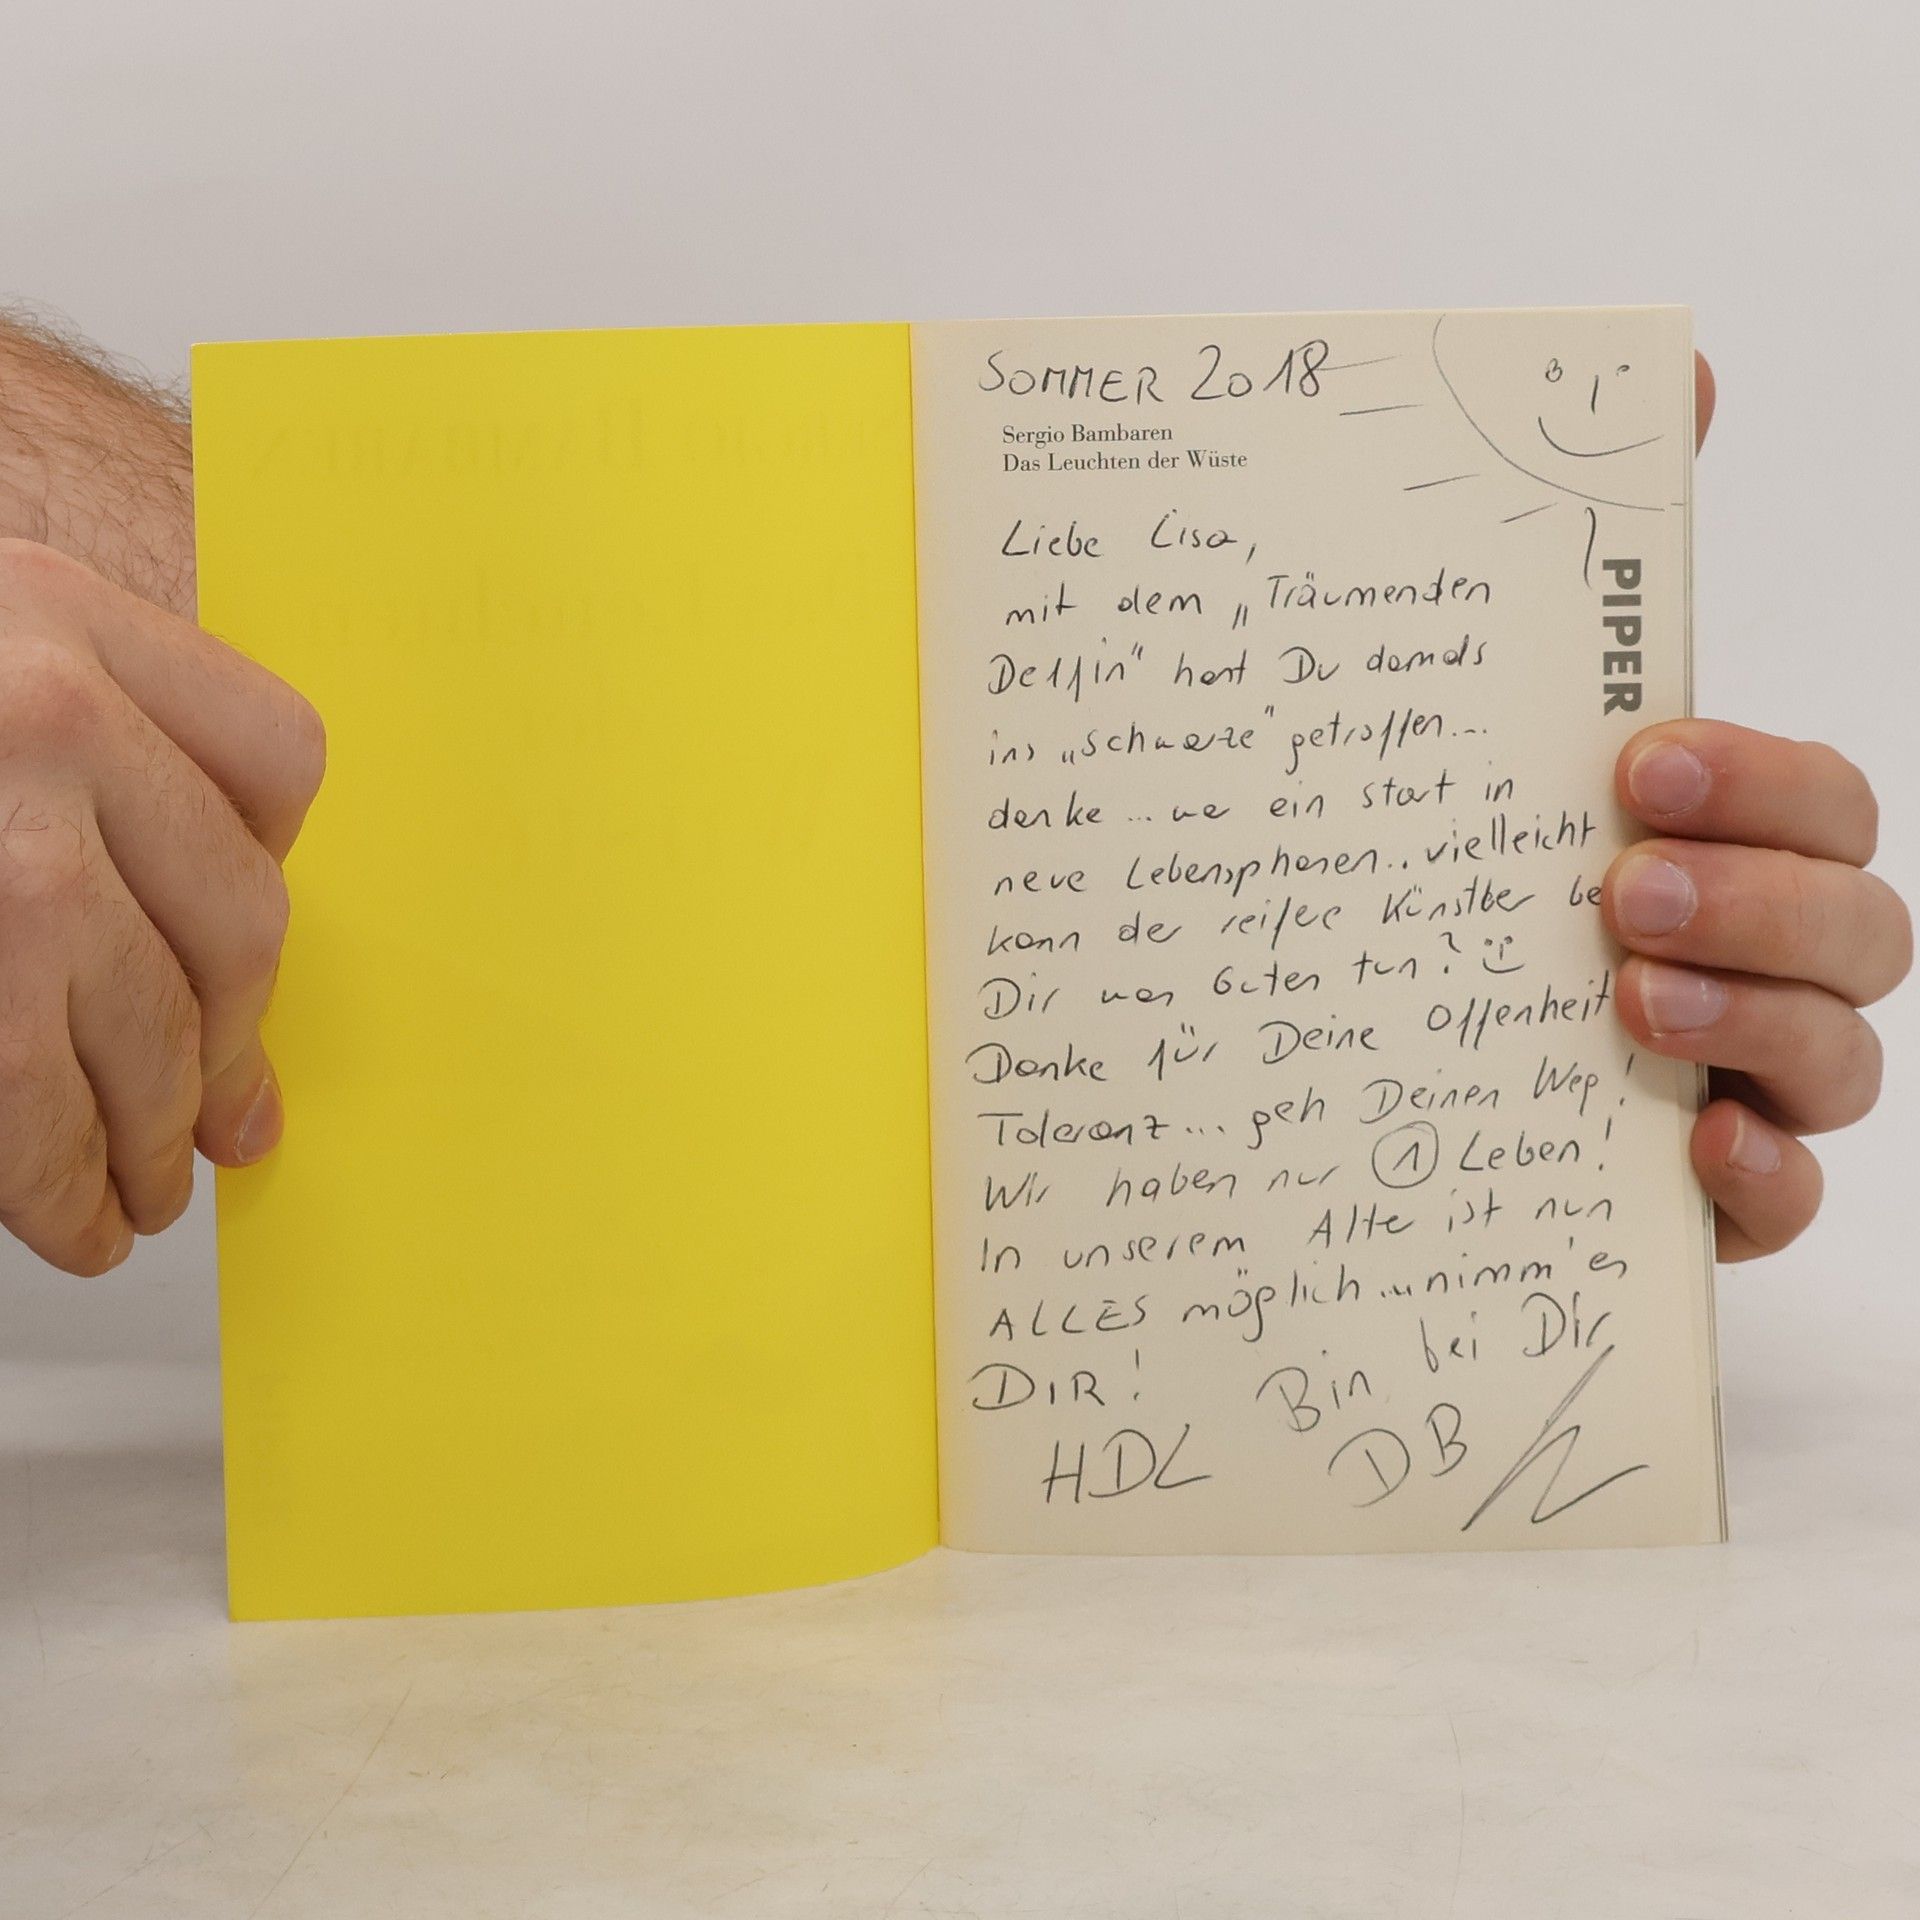 SOMMER 2018
Sergio Bambaren
Das Leuchten der Wüste
PIPER
Liebe Lisa,
mit dem „Träumenden
Delfin" hast Du damals
ins „schwarze" getroffen...
danke ... war ein start in
neue Lebensphasen.. vielleicht
kann der reifere Künstler be
Dir was Gutes tun?
Danke für Deine Offenheit
Toleranz... geh Deinen Weg!
Wir haben nur 1 Leben!
In unserem Alter ist nun
ALLES möglich ... nimm' es
DIR! Bin bei Dir
HDL DB